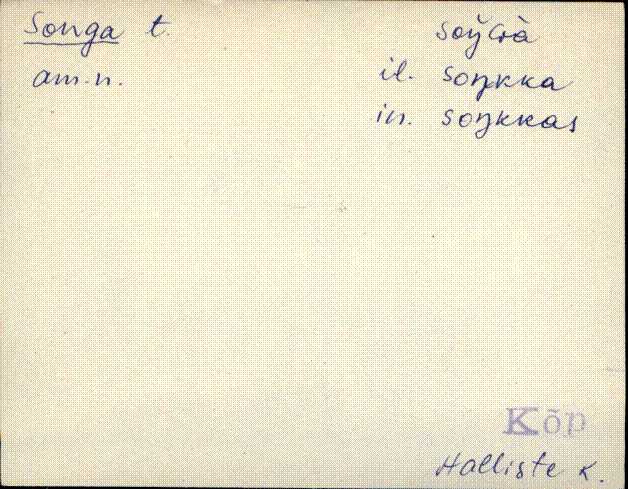 Songa t.
am.n.
soŋ̆Gà
il. soŋkka
in. soŋkkas
Kõp
Halliste k.